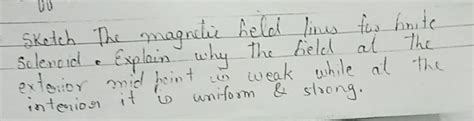 Sketch The magnetic field lines for finite
Solenoid. Explain why The field at The
exterior mid point is weak while at the
interior it is uniform & strong.